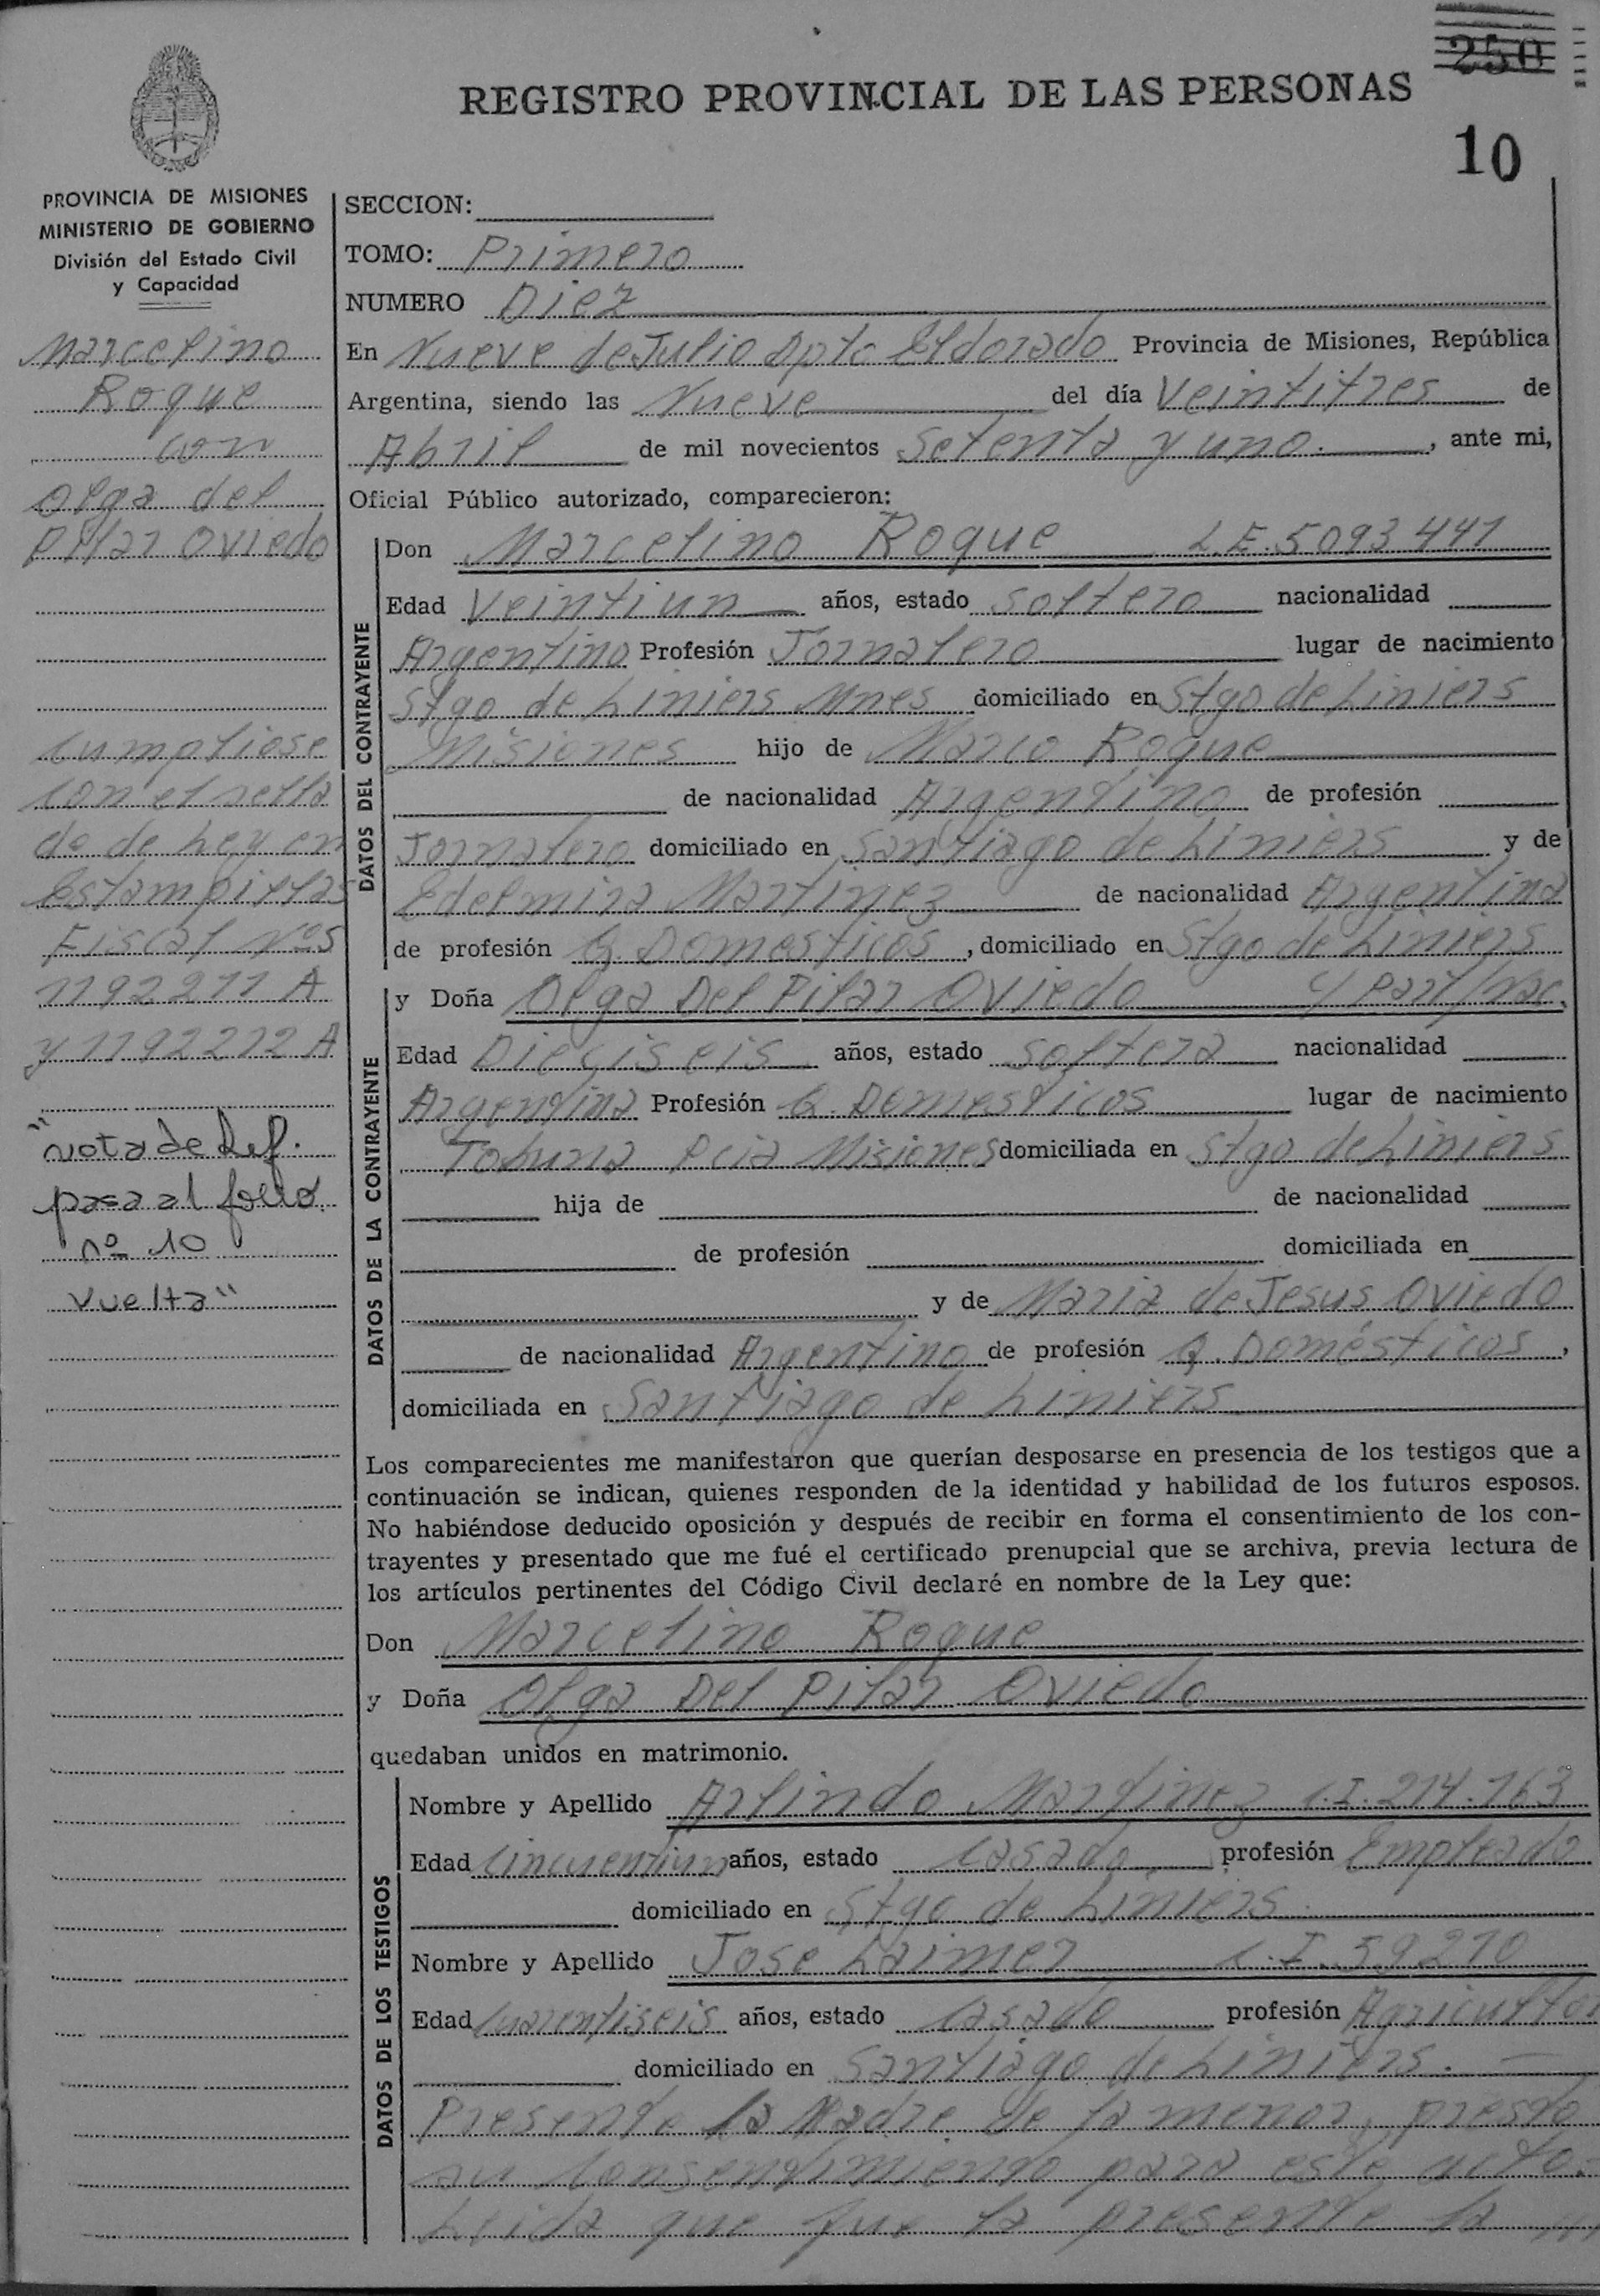 250
REGISTRO PROVINCIAL DE LAS PERSONAS
10
PROVINCIA DE MISIONES
MINISTERIO DE GOBIERNO
División del Estado Civil
y Capacidad
Marcelino
Roque
con
Olga del
Pilar Oviedo
Cumpliose
con el sella
do de Ley en
Estampillas
Fiscal Nos
1192211 A
y 1192212 A
"Nota de Ref.
pasa al folio
nº 10
vuelta"
SECCION:
TOMO: Primero
NUMERO Diez
En Nueve de Julio Dpto Eldorado Provincia de Misiones, República
Argentina, siendo las Nueve del día Veintitres de
Abril de mil novecientos Setenta y uno. , ante mi,
Oficial Público autorizado, comparecieron:
DATOS DEL CONTRAYENTE
Don Marcelino Roque L.E. 5093441
Edad Veintiun años, estado soltero nacionalidad
Argentino Profesión Jornalero lugar de nacimiento
Stgo de Liniers Mnes domiciliado en Stgo de Liniers
Misiones hijo de Marco Roque
de nacionalidad Argentino de profesión
Jornalero domiciliado en Santiago de Liniers y de
Edelmira Martinez de nacionalidad Argentina
de profesión Q. Domesticos , domiciliado en Stgo de Liniers
DATOS DE LA CONTRAYENTE
y Doña Olga Del Pilar Oviedo c/ Part/Nac.
Edad Dieciseis años, estado soltera nacionalidad
Argentina Profesión Q. Domesticos lugar de nacimiento
Tobuna Pcia Misiones domiciliada en Stgo de Liniers
hija de de nacionalidad
de profesión domiciliada en
y de Maria de Jesus Oviedo
de nacionalidad Argentino de profesión Q. Domésticos ,
domiciliada en Santiago de Liniers
Los comparecientes me manifestaron que querían desposarse en presencia de los testigos que a
continuación se indican, quienes responden de la identidad y habilidad de los futuros esposos.
No habiéndose deducido oposición y después de recibir en forma el consentimiento de los con-
trayentes y presentado que me fué el certificado prenupcial que se archiva, previa lectura de
los artículos pertinentes del Código Civil declaré en nombre de la Ley que:
Don Marcelino Roque
y Doña Olga Del Pilar Oviedo
quedaban unidos en matrimonio.
DATOS DE LOS TESTIGOS
Nombre y Apellido Arlindo Martinez C.I. 214.163
Edad Cincuentiun años, estado casado profesión Empleado
domiciliado en Stgo de Liniers.
Nombre y Apellido Jose Laimer C.I. 59210
Edad Cuarentiseis años, estado casado profesión Agricultor
domiciliado en Santiago de Liniers.
Presente la Madre de la menor, presto
su Consentimiento para este acto.-
Leida que fue la presente la ///